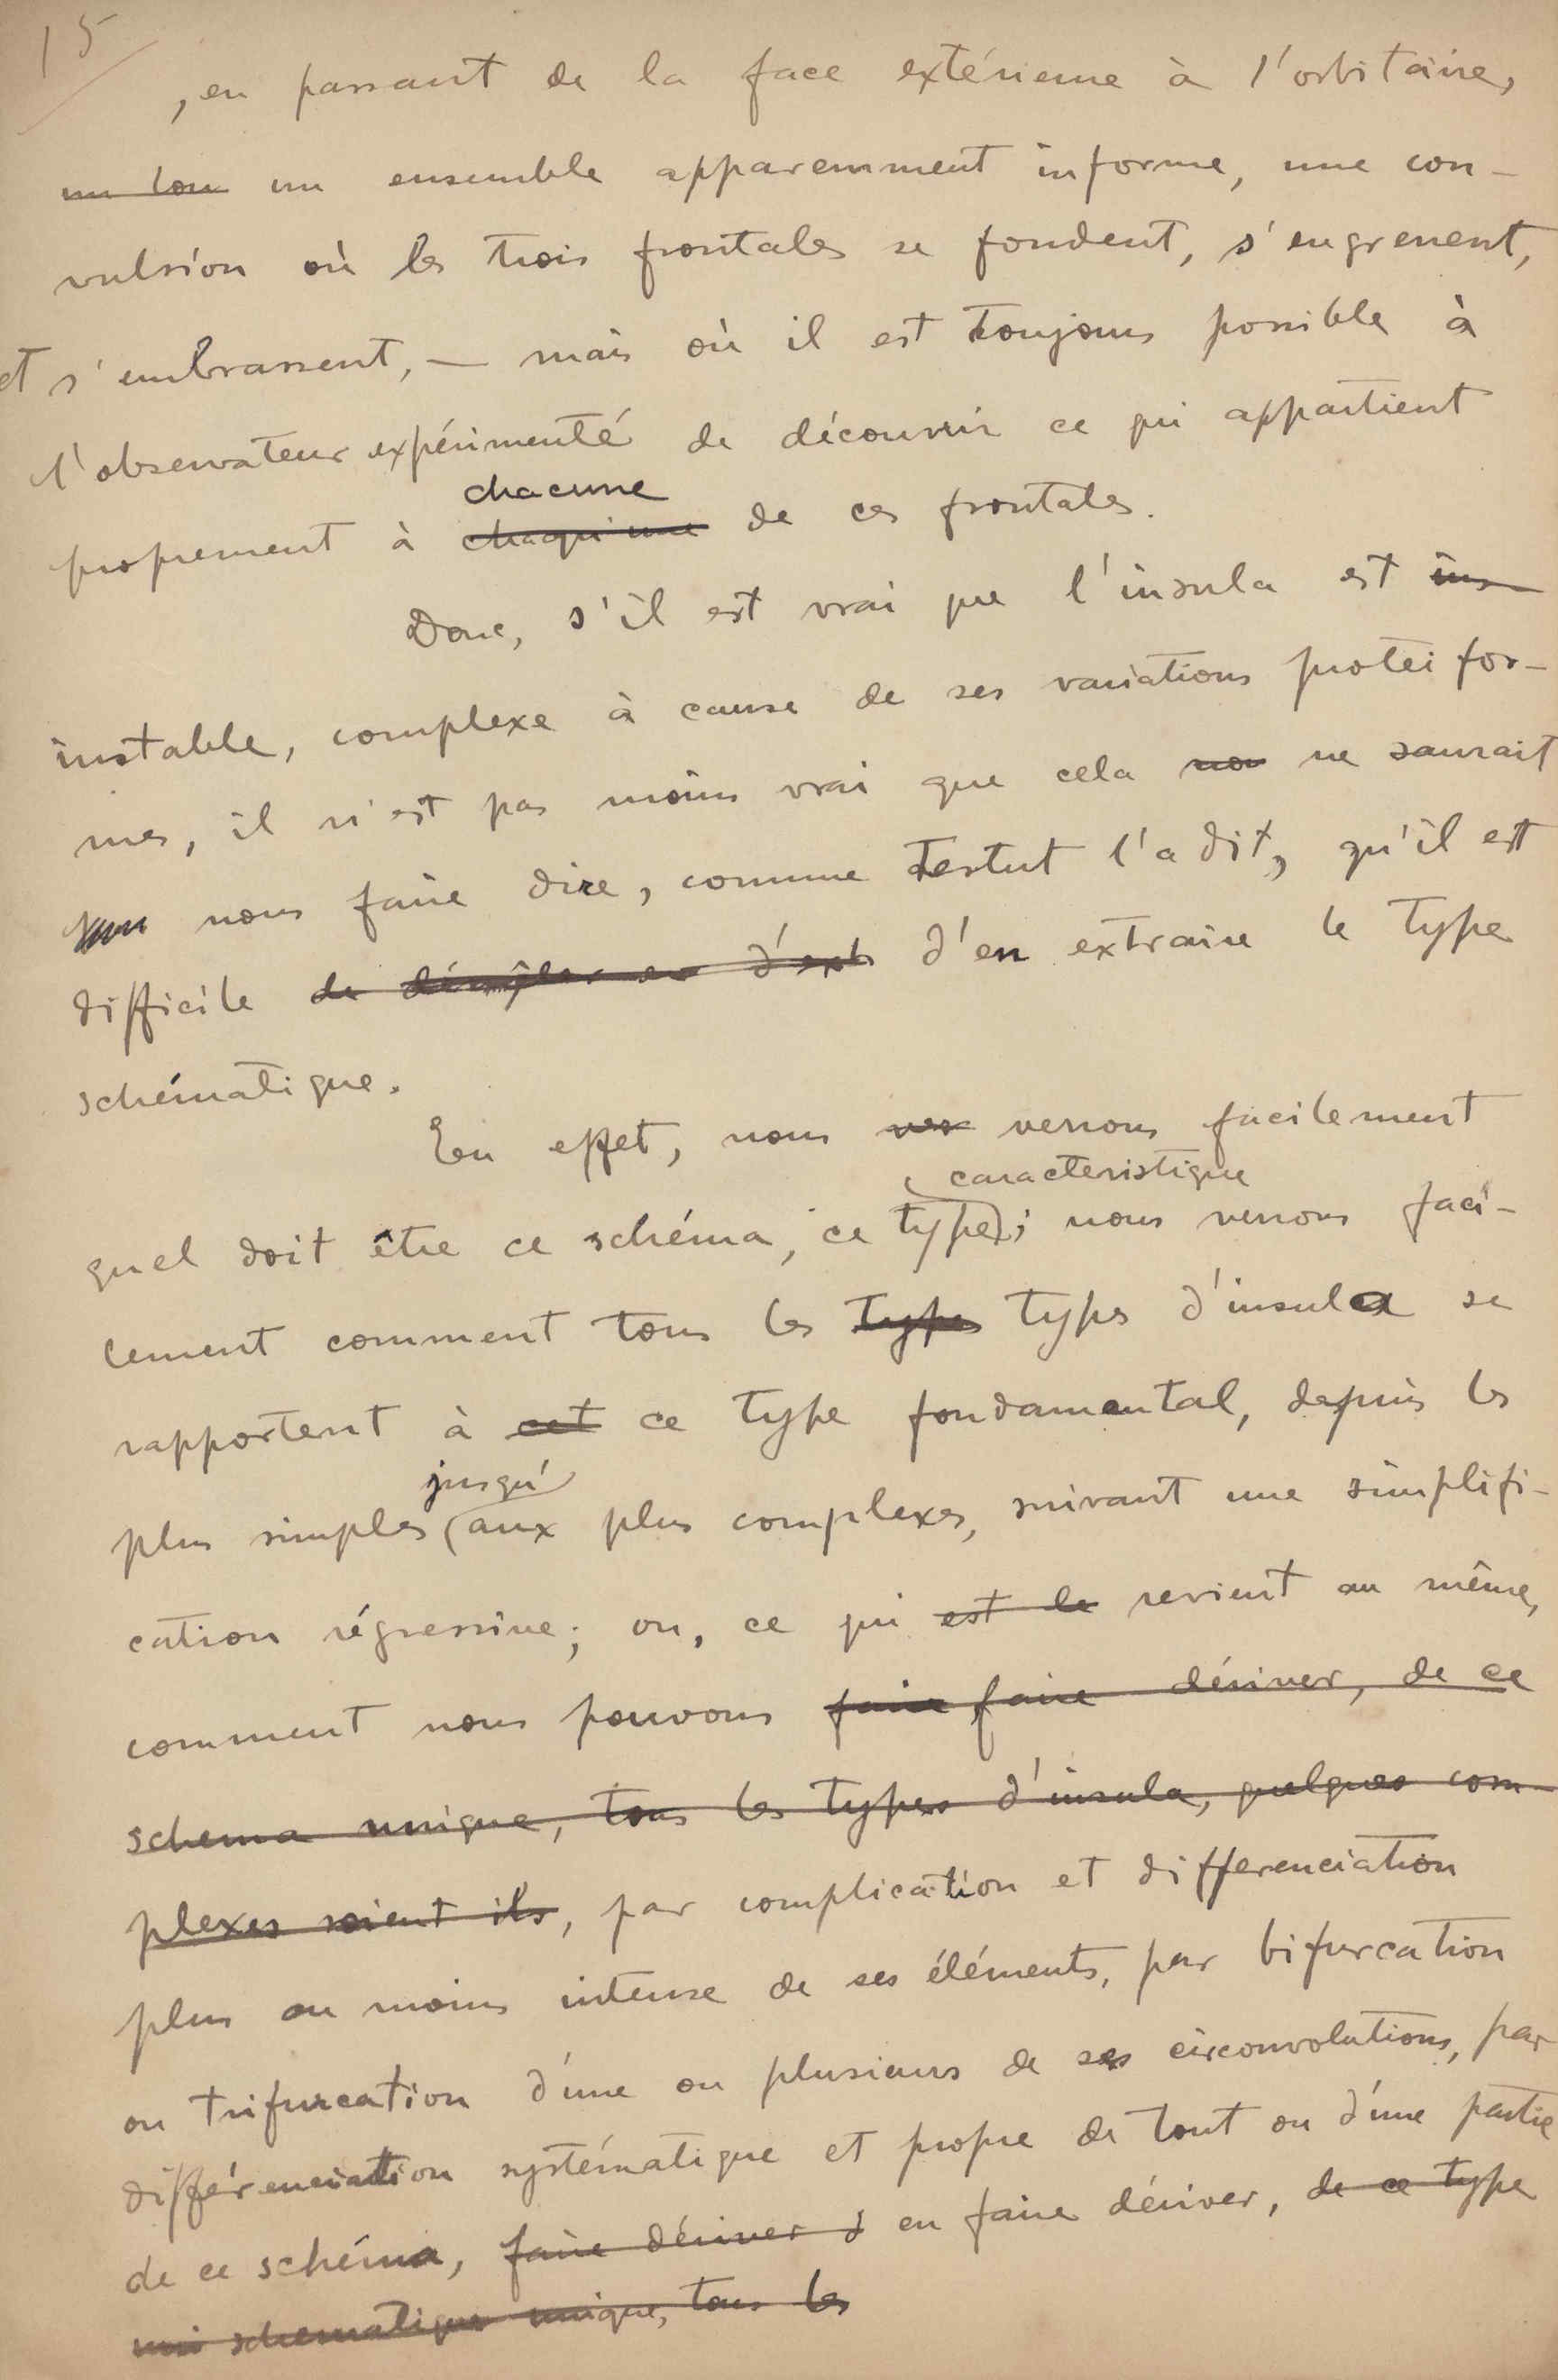 15
, en passant de la face extérieure à l'orbitaire,
un tou un ensemble apparemment informe, une con-
vulsion où les trois frontales se fondent, s'engrenent,
et s'embrassent, — mais où il est toujours possible à
l'observateur expérimenté de découvrir ce qui appartient
chacune
proprement à chaqu'une de ces frontales.
Donc, s'il est vrai que l'insula est ins
instable, complexe à cause de ses variations proteifor-
mes, il n'est pas moins vrai que cela ne saurait
nous faire dire, comme Testut l'a dit, qu'il est
difficile de démêler en d'ext d'en extraire le type
schématique.
En effet, nous ver verrons facilement
caracteristique
quel doit être ce schéma, ce type; nous verrons faci-
lement comment tous les types types d'insula se
rapportent à cet ce type fondamental, depuis les
jusqu'
plus simples aux plus complexes, suivant une simplifi-
cation régressive; ou, ce qui est le revient au même,
comment nous pouvons faire faire dériver, de ce
schema unique, tous les types d'insula, quelques com-
plexes soient ils, par complication et differenciation
plus ou moins intense de ses éléments, par bifurcation
ou trifurcation d'une ou plusieurs de ses circonvolutions, par
différenciation systématique et propre de tout ou d'une partie
de ce schéma, faire dériver d en faire dériver, de ce type
schematique unique, tous les